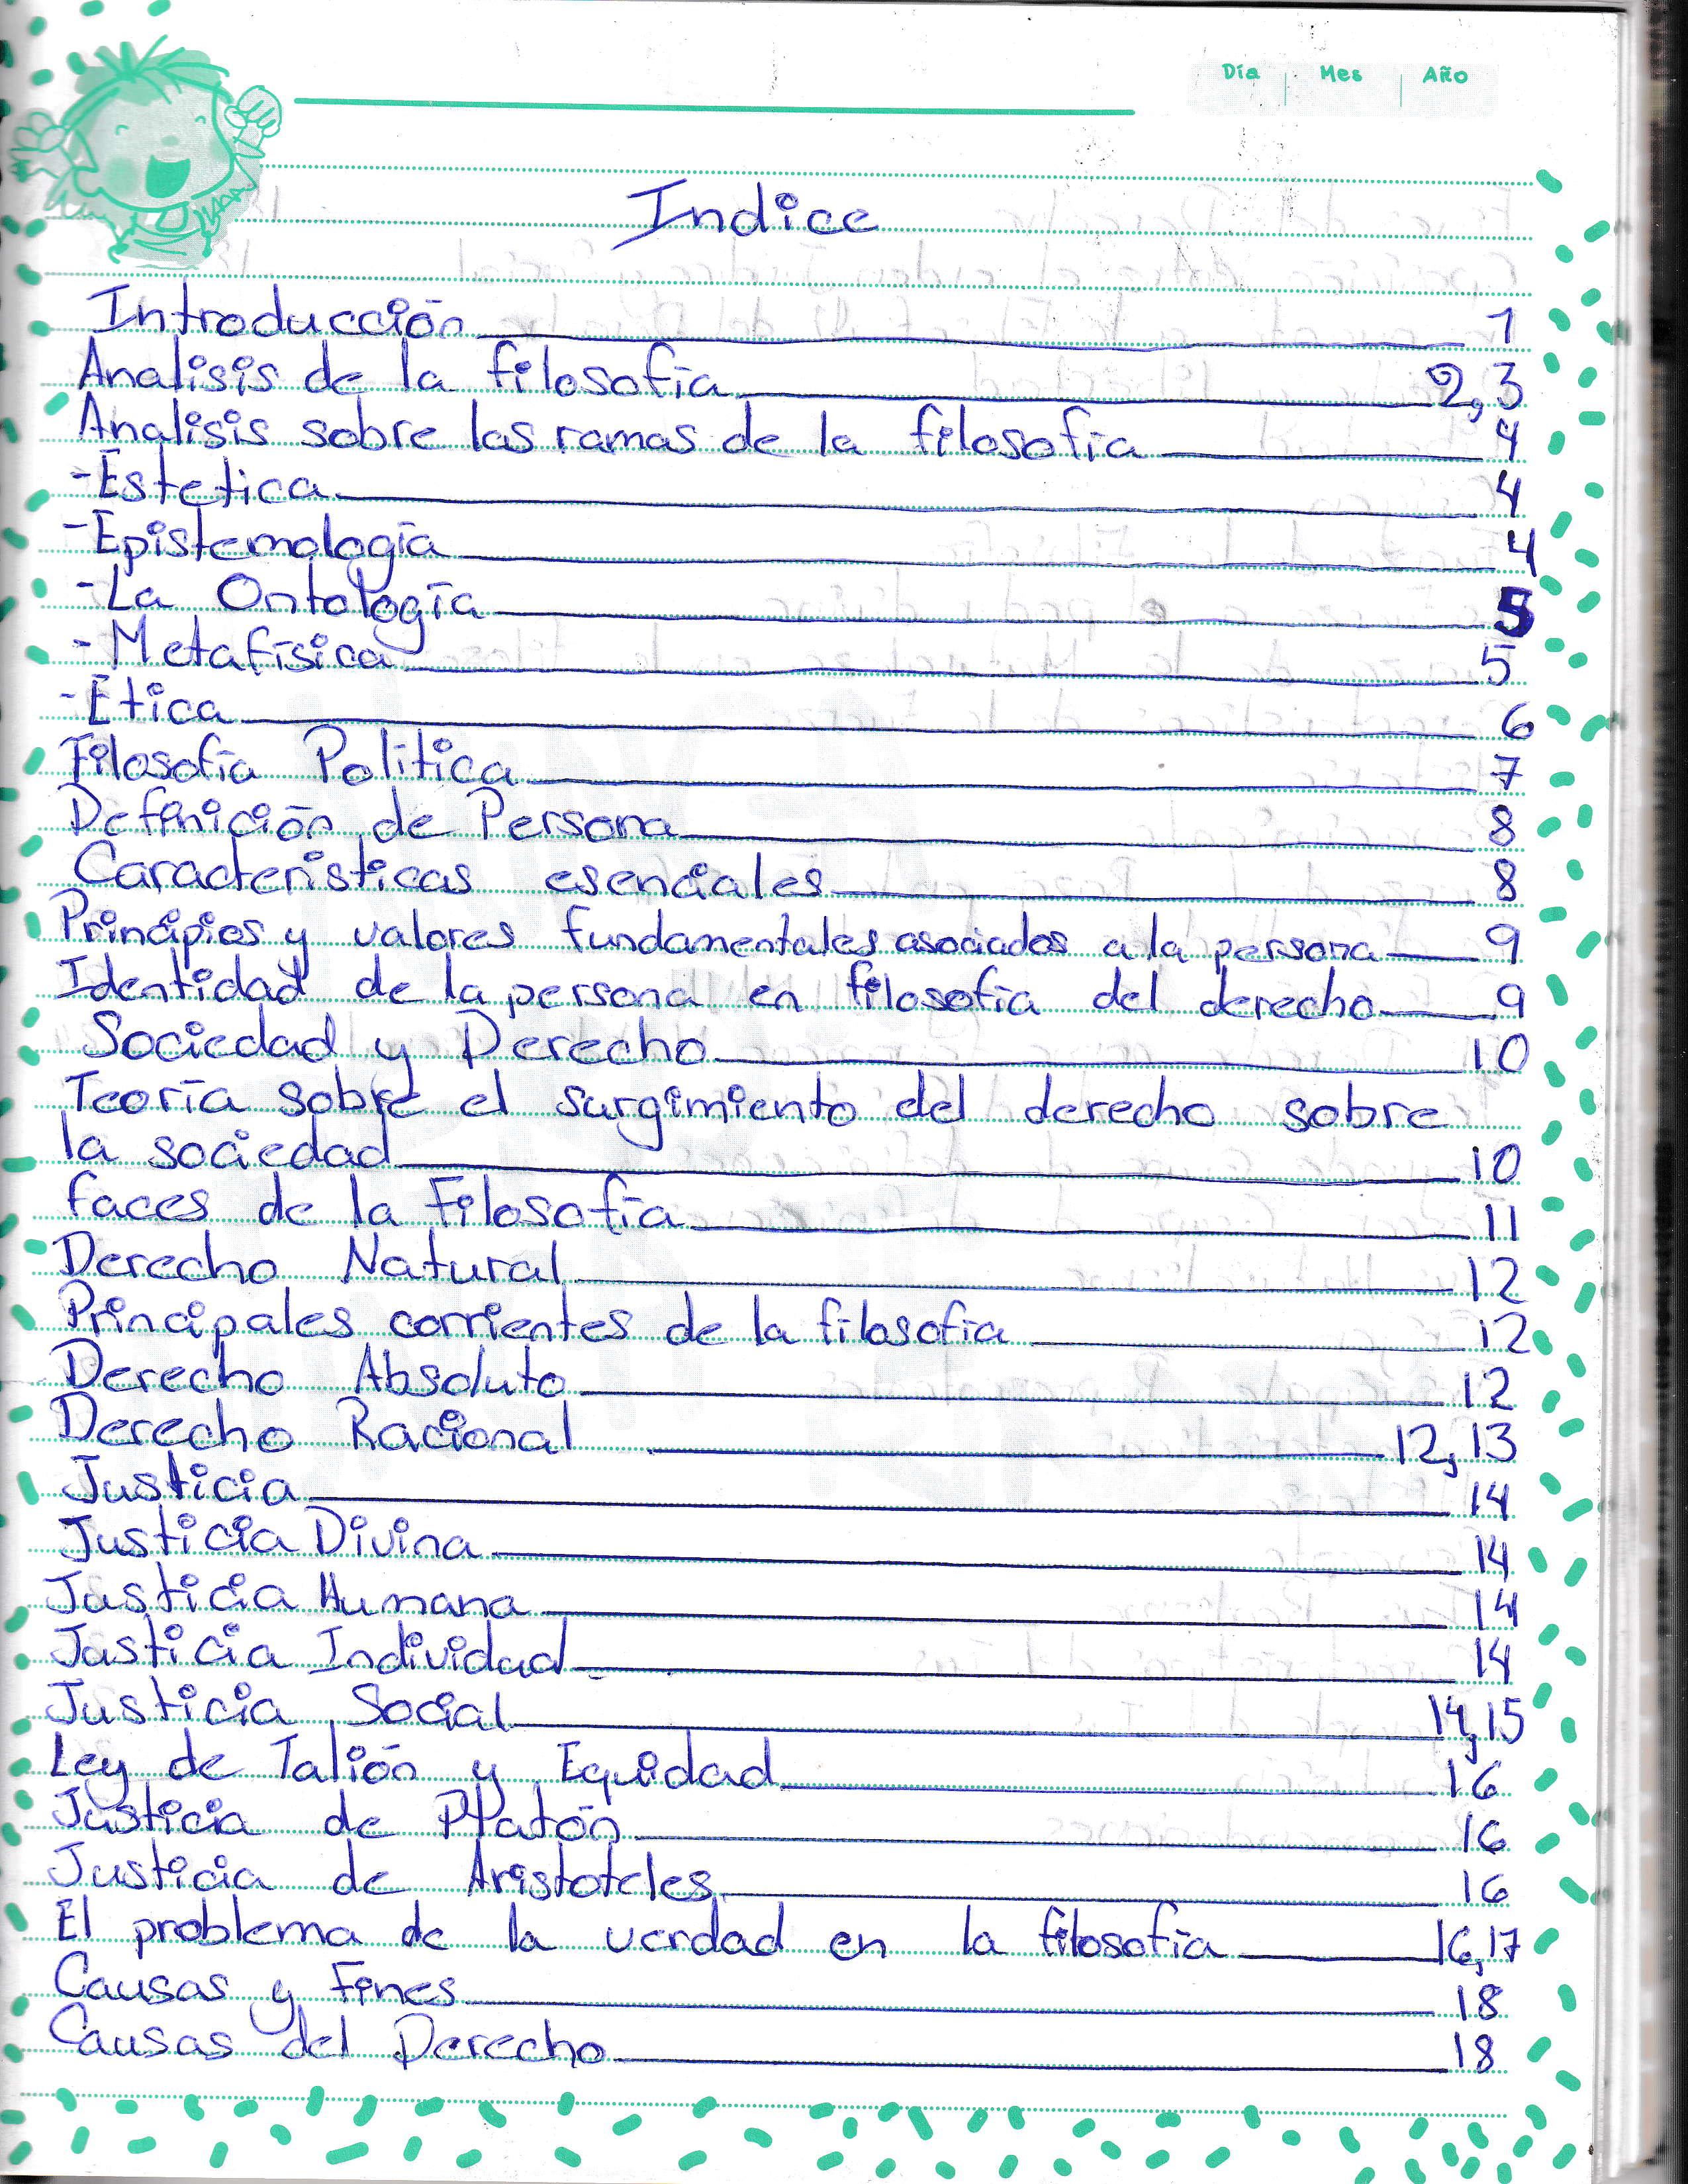 Día Mes Año
Indice
Introducción 1
Analisis de la filosofía 2,3
Analisis sobre las ramas de la filosofía 4
-Estetica 4
-Epistemología 4
-La Ontología 5
-Metafísica 5
-Etica 6
Filosofía Politica 7
Definición de Persona 8
Caracteristicas esenciales 8
Principios y valores fundamentales asociados a la persona 9
Identidad de la persona en filosofía del derecho 9
Sociedad y Derecho 10
Teoría sobre el surgimiento del derecho sobre
la sociedad 10
faces de la Filosofía 11
Derecho Natural 12
Principales corrientes de la filosofía 12
Derecho Absoluto 12
Derecho Racional 12,13
Justicia 14
Justicia Divina 14
Justicia Humana 14
Justicia Individad 14
Justicia Social 14,15
Ley de Talión y Equidad 16
Justicia de Platón 16
Justicia de Aristoteles 16
El problema de la verdad en la filosofía 16,17
Causas y Fines 18
Causas del Derecho 18